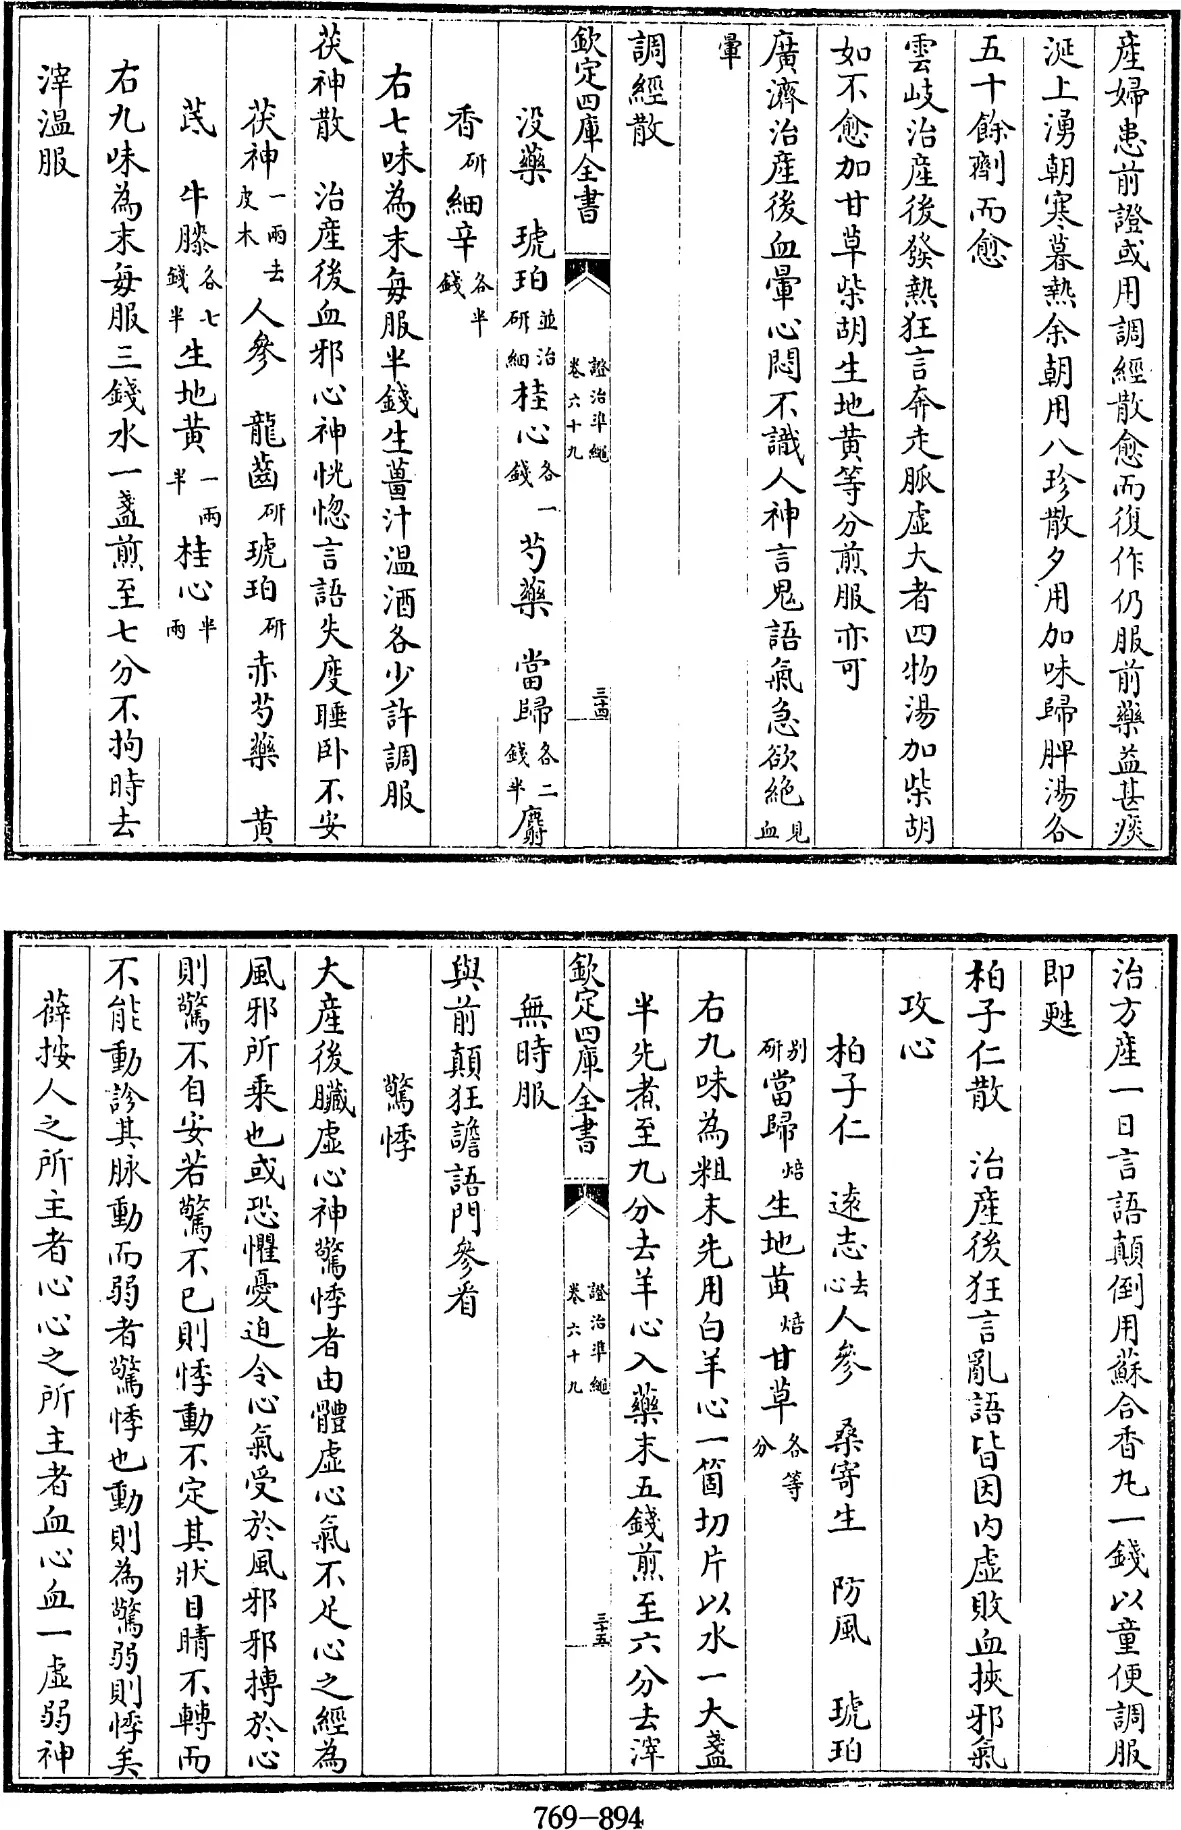 産婦患前證或用調經散愈而復作仍服前藥益甚痰
涎上湧朝寒暮熱余朝用八珍散夕用加味歸脾湯各
五十餘劑而愈
雲岐治産後發熱狂言奔走脈虚大者四物湯加柴胡
如不愈加甘草柴胡生地黄等分煎服亦可
廣濟治産後血暈心悶不識人神言鬼語氣急欲絶見血
暈
調經散
欽定四庫全書 證治準繩卷六十九 三十四
没藥 琥珀並治研細桂心各一錢 芍藥 當歸各二錢半麝
香研細辛各半錢
右七味為末每服半錢生薑汁温酒各少許調服
茯神散 治産後血邪心神恍惚言語失度睡卧不安
茯神一兩去皮木人參 龍齒研琥珀研赤芍藥 黄
芪 牛膝各七錢半生地黄一兩半桂心半兩
右九味為末每服三錢水一盞煎至七分不拘時去
滓温服
治方産一日言語顛倒用蘇合香丸一錢以童便調服
即甦
柏子仁散 治産後狂言亂語皆因内虚敗血挾邪氣
攻心
柏子仁 遠志去心人參 桑寄生 防風 琥珀
别研當歸焙生地黄焙甘草各等分
右九味為粗末先用白羊心一箇切片以水一大盞
半先煮至九分去羊心入藥末五錢煎至六分去滓
欽定四庫全書 證治準繩卷六十九 三十五
無時服
與前顛狂譫語門參看
驚悸
大産後臟虚心神驚悸者由體虚心氣不足心之經為
風邪所乗也或恐懼憂迫令心氣受於風邪邪搏於心
則驚不自安若驚不已則悸動不定其狀目睛不轉而
不能動診其脉動而弱者驚悸也動則為驚弱則悸矣
薛按人之所主者心心之所主者血心血一虚弱神
769-894